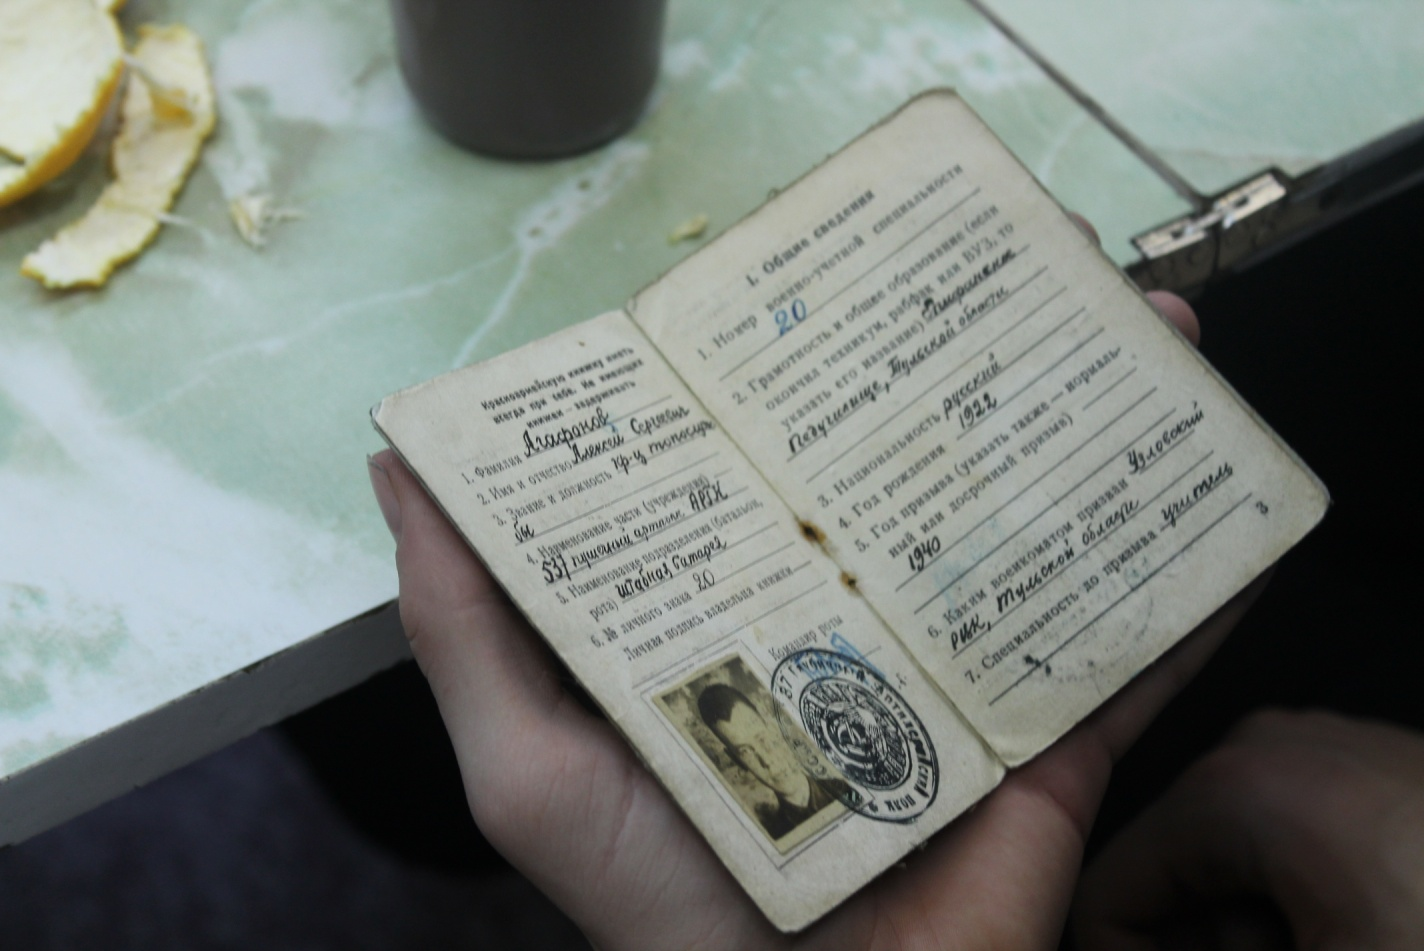 Красноармейскую книжку иметь
всегда при себе. Не имеющих
книжки — задерживать
1. Фамилия Агафонов
2. Имя и отчество Алексей Сергеевич
3. Звание и должность кр-ц топослуж
бы
4. Наименование части (учреждения)
537 пушечный артполк АРГК
5. Наименование подразделения (батальон,
рота) штабная батарея
6. № личного знака 20
Личная подпись владельца книжки
Командир роты
87 Гаубичный Артиллерийский полк
I. Общие сведения
1. Номер военно-учетной специальности
20
2. Грамотность и общее образование (если
окончил техникум, рабфак или ВУЗ, то
указать его название)
Педучилище, Тульской области
3. Национальность русский
4. Год рождения 1922
5. Год призыва (указать также — нормаль-
ный или досрочный призыв)
1940
6. Каким военкоматом призван Узловский
РВК, Тульской области
7. Специальность до призыва учитель
3